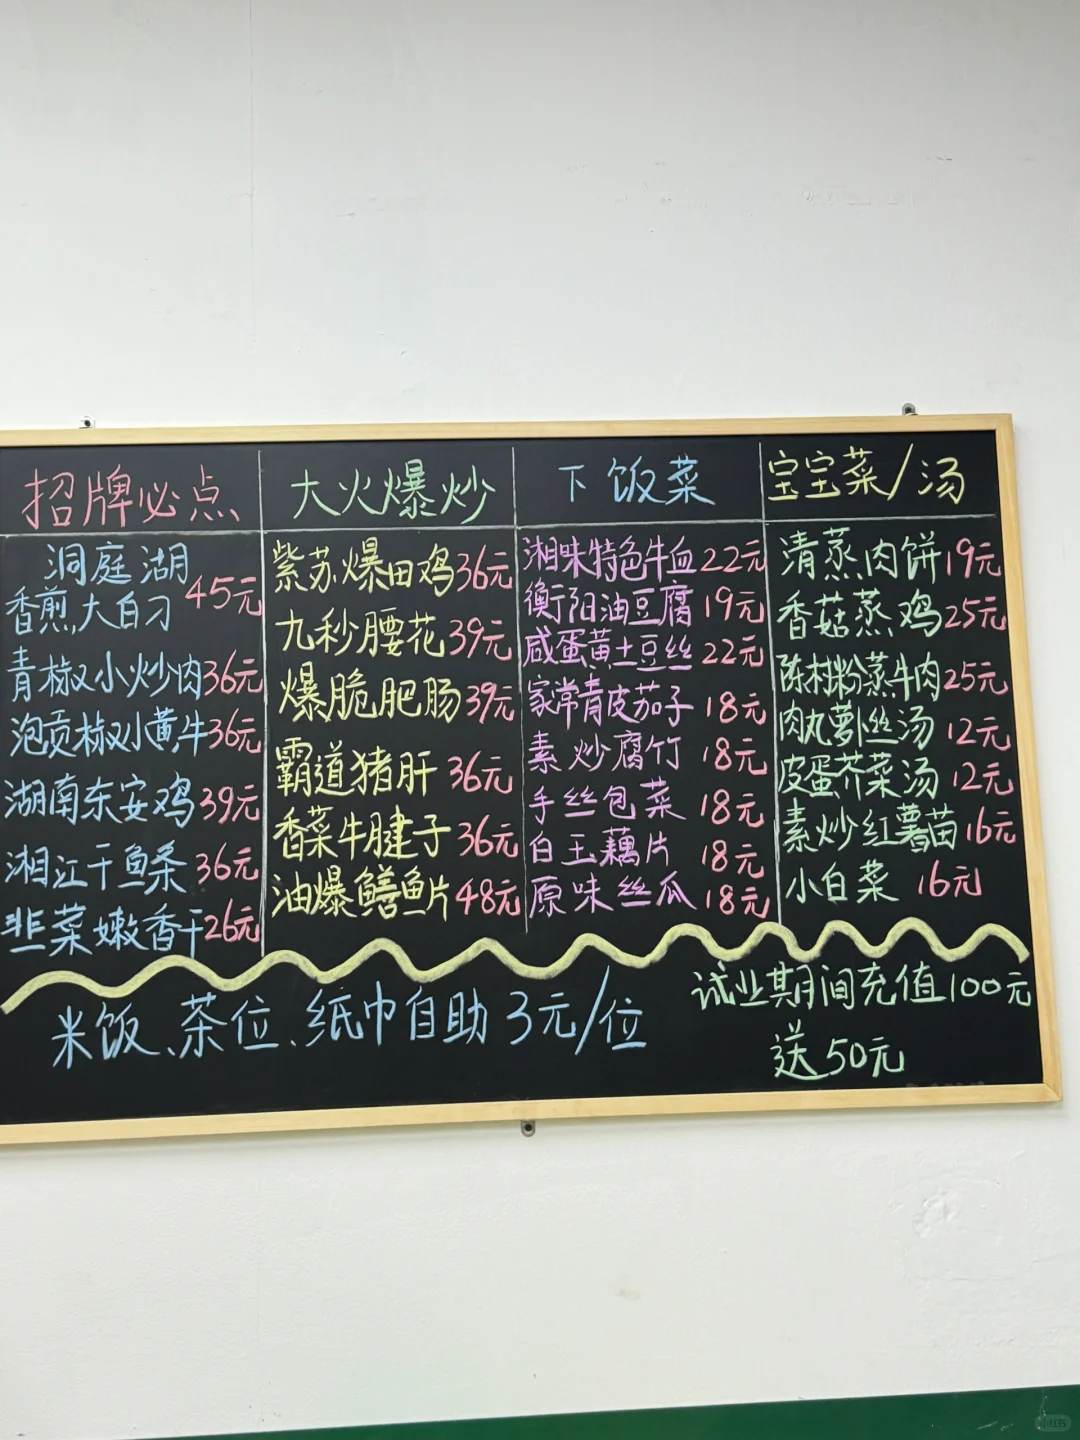 招牌必点
洞庭湖
香煎大白刁 45元
青椒小炒肉 36元
泡贡椒小黄牛 36元
湖南东安鸡 39元
湘江干鱼条 36元
韭菜嫩香干 26元
大火爆炒
紫苏爆田鸡 36元
九秒腰花 39元
爆脆肥肠 39元
霸道猪肝 36元
香菜牛腱子 36元
油爆鳝鱼片 48元
下饭菜
湘味特色牛血 22元
衡阳油豆腐 19元
咸蛋黄土豆丝 22元
家常青皮茄子 18元
素炒腐竹 18元
手丝包菜 18元
白玉藕片 18元
原味丝瓜 18元
宝宝菜/汤
清蒸肉饼 19元
香菇蒸鸡 25元
陈村粉蒸牛肉 25元
肉丸萝卜丝汤 12元
皮蛋芥菜汤 12元
素炒红薯苗 16元
小白菜 16元
米饭、茶位、纸巾自助 3元/位
试业期间充值100元
送50元
小红书